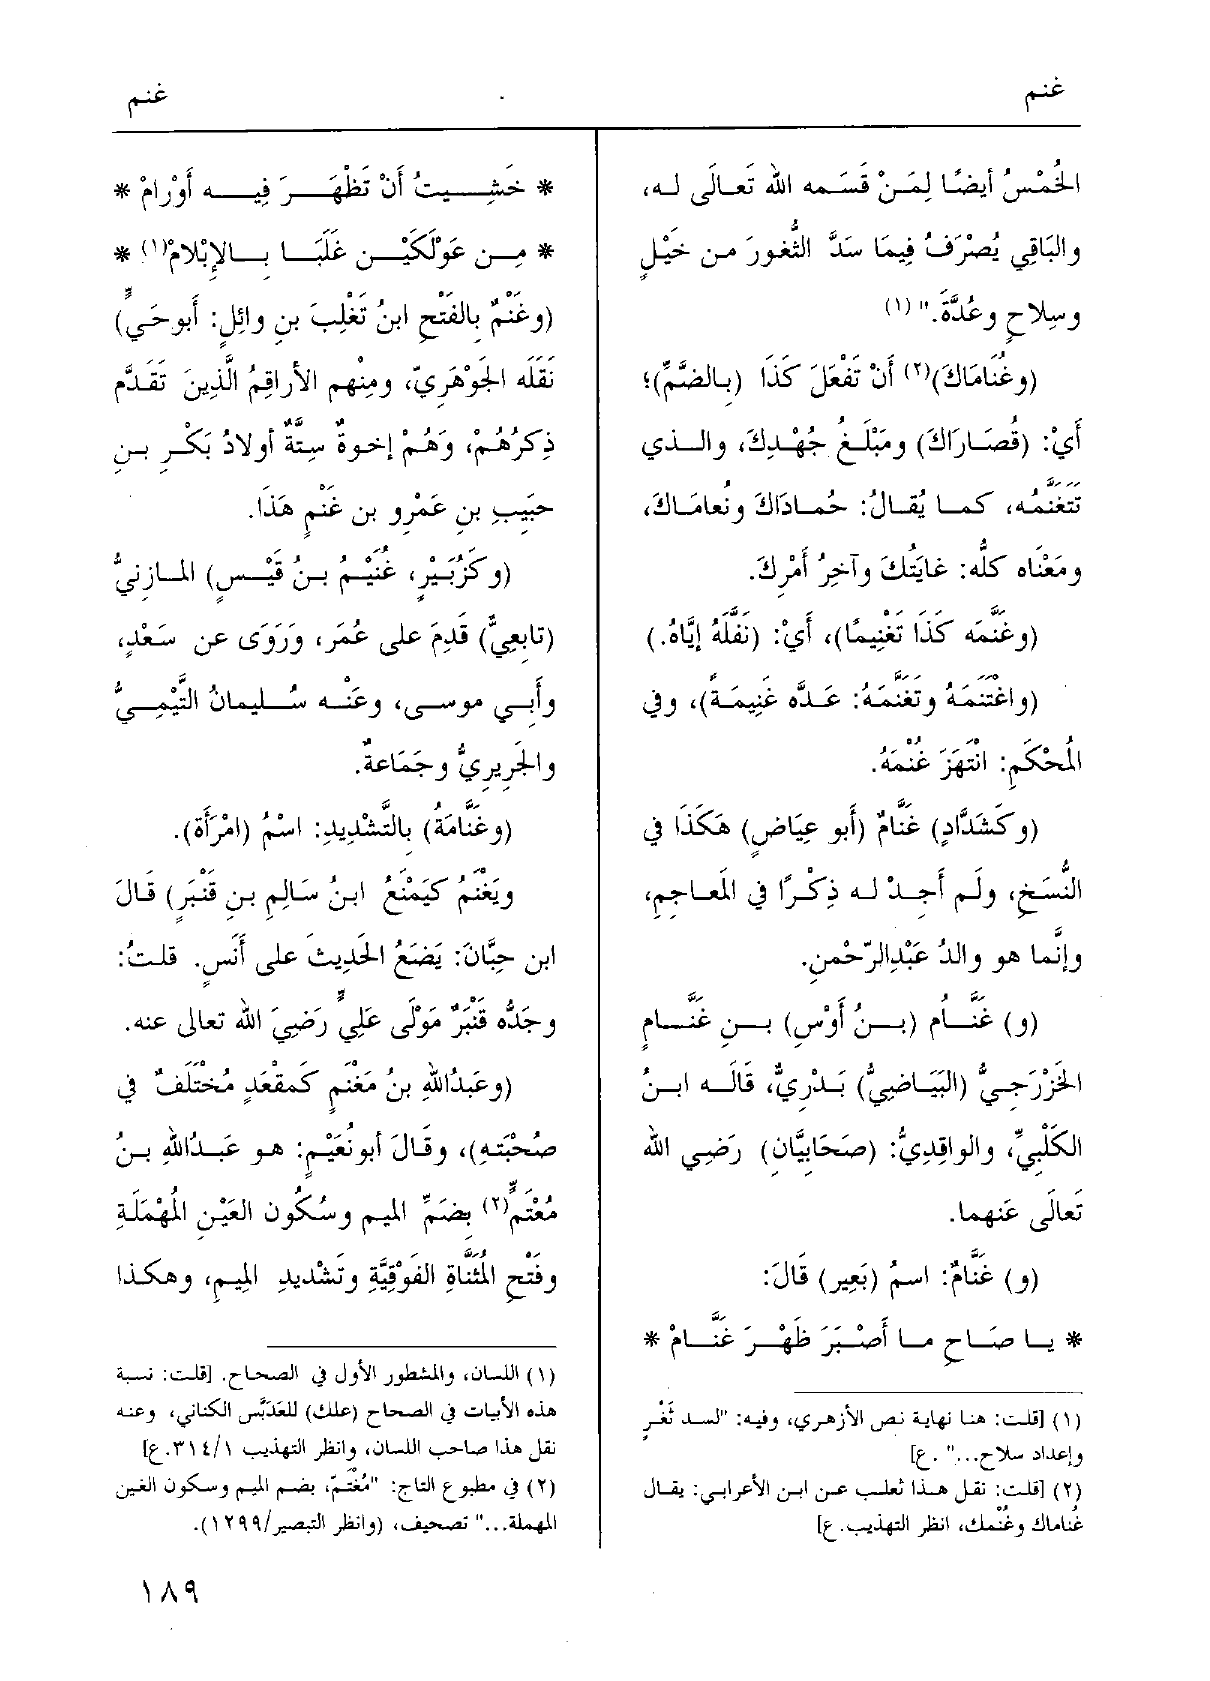 غنم
غنم
الخُمْسُ أيضًا لِمَنْ قَسَمه الله تَعالَى له،
والبَاقِي يُصْرَفُ فِيمَا سَدَّ الثُّغورَ من خَيْلٍ
وسِلاحٍ وعُدَّةٍ." (١)
(وغُنَامَاكَ)(٢) أَنْ تَفْعَلَ كَذَا (بِالضَّمِّ)؛
أَيْ: (قُصَارَاكَ) ومَبْلَغُ جُهْدِكَ، والـذي
تَتَغَنَّمُه، كمـا يُقـالُ: حُمادَاكَ ونُعامَاكَ،
ومَعْنَاه كلّه: غايَتُكَ وآخِرُ أَمْرِكَ.
(وغَنَّمَه كَذَا تَغْنِيمًا)، أَيْ: (نَفَّلَهُ إيَّاهُ.)
(واغْتَنَمَهُ وتَغَنَّمَهُ: عَـدَّه غَنِيمَـةً)، وفي
المُحْكَمِ: انْتَهَزَ غُنْمَهُ.
(وكَشَدَّادٍ) غَنَّامٌ (أبو عِيَاضٍ) هَكَذَا في
النُّسَخِ، ولَم أَجِدْ لـه ذِكْـرًا في المَعـاجِمِ،
وإنَّما هو والدُ عَبْدِالرّحْمنِ.
(و) غَنَّـامُ (بـنُ أَوْسِ) بـنِ غَنَّـامٍ
الخَزْرَجيُّ (البَيَـاضِيُّ) بَـدْرِيٌّ، قَالَـه ابـنُ
الكَلْبِيِّ، والواقِدِيُّ: (صَحَابِيَّان) رَضِي الله
تَعالَى عَنهما.
(و) غَنَّامٌ: اسمُ (بَعِير) قَالَ:
* يـا صَـاحِ مـا أَصْبَرَ ظَهْـرَ غَنَّـامْ *
(١) [قلت: هنا نهاية نص الأزهري، وفيه: "لسد ثَغْرٍ
وإعداد سلاح..." .ع]
(٢) [قلت: نقل هـذا ثعلب عـن ابن الأعرابي: يقـال
غُناماك وغُنْمك، انظر التهذيب.ع]
* خَشِـيتُ أَنْ تَظْهَـرَ فِيـه أَوْرامْ *
* مِـن عَوْلَكَيْـن غَلَبَـا بـالإبْلامْ(١) *
(وغَنْمٌ بِالفَتْحِ ابنُ تَغْلِبَ بنِ وائِلٍ: أَبوحَيٍّ)
نَقَلَه الجَوْهَرِيّ، ومِنْهم الأَراقِمُ الَّذِينَ تَقَدَّم
ذِكرُهُمْ، وَهُمْ إخوةٌ سِتَّةٌ أولادُ بَكْرِ بـنِ
حَبِيبِ بنِ عَمْرِو بن غَنْمٍ هَذَا.
(وكَزُبَيْرٍ، غُنَيْـمُ بـنُ قَيْـسٍ) المـازنيُّ
(تابعِيٌّ) قَدِمَ على عُمَرَ، ورَوَى عن سَعْدٍ،
وأبـي موسـى، وعَنْـه سُـليمانُ التَّيْمِـيُّ
والجَرِيرِيُّ وجَمَاعةٌ.
(وغَنَّامَةُ) بِالتَّشْدِيدِ: اسْمُ (امْرَأَة).
ويَغْنَمُ كَيَمْنَعُ ابنُ سَالِمِ بنِ قَنْبَرٍ) قَالَ
ابن حِبَّانَ: يَضَعُ الحَدِيثَ على أَنَسٍ. قلتُ:
وجَدُّه قَنْبَرٌ مَوْلَى عَلِيٍّ رَضِيَ الله تعالى عنه.
(وعَبدُاللهِ بنُ مَغْنَمٍ كَمقْعَدٍ مُخْتَلَفٌ في
صُحْبَتهِ)، وقَالَ أبونُعَيْمٍ: هـو عَبـدُاللهِ بـنُ
مُعْتَمٍّ(٢) بِضَمِّ الميم وسُكُون العَيْنِ المُهْمَلَةِ
وفَتْحِ المُثَنَّاةِ الفَوْقِيَّةِ وتَشْديدِ الميمِ، وهكذا
(١) اللسان، والمشطور الأول في الصحاح. [قلت: نسبة
هذه الأبيات في الصحاح (علك) للعَدَبَّس الكناني، وعنه
نقل هذا صاحب اللسان، وانظر التهذيب ٣١٤/١.ع]
(٢) في مطبوع التاج: "مُغْتَمّ، بضم الميم وسكون الغين
المهملة..." تصحيف، (وانظر التبصير/١٢٩٩).
١٨٩